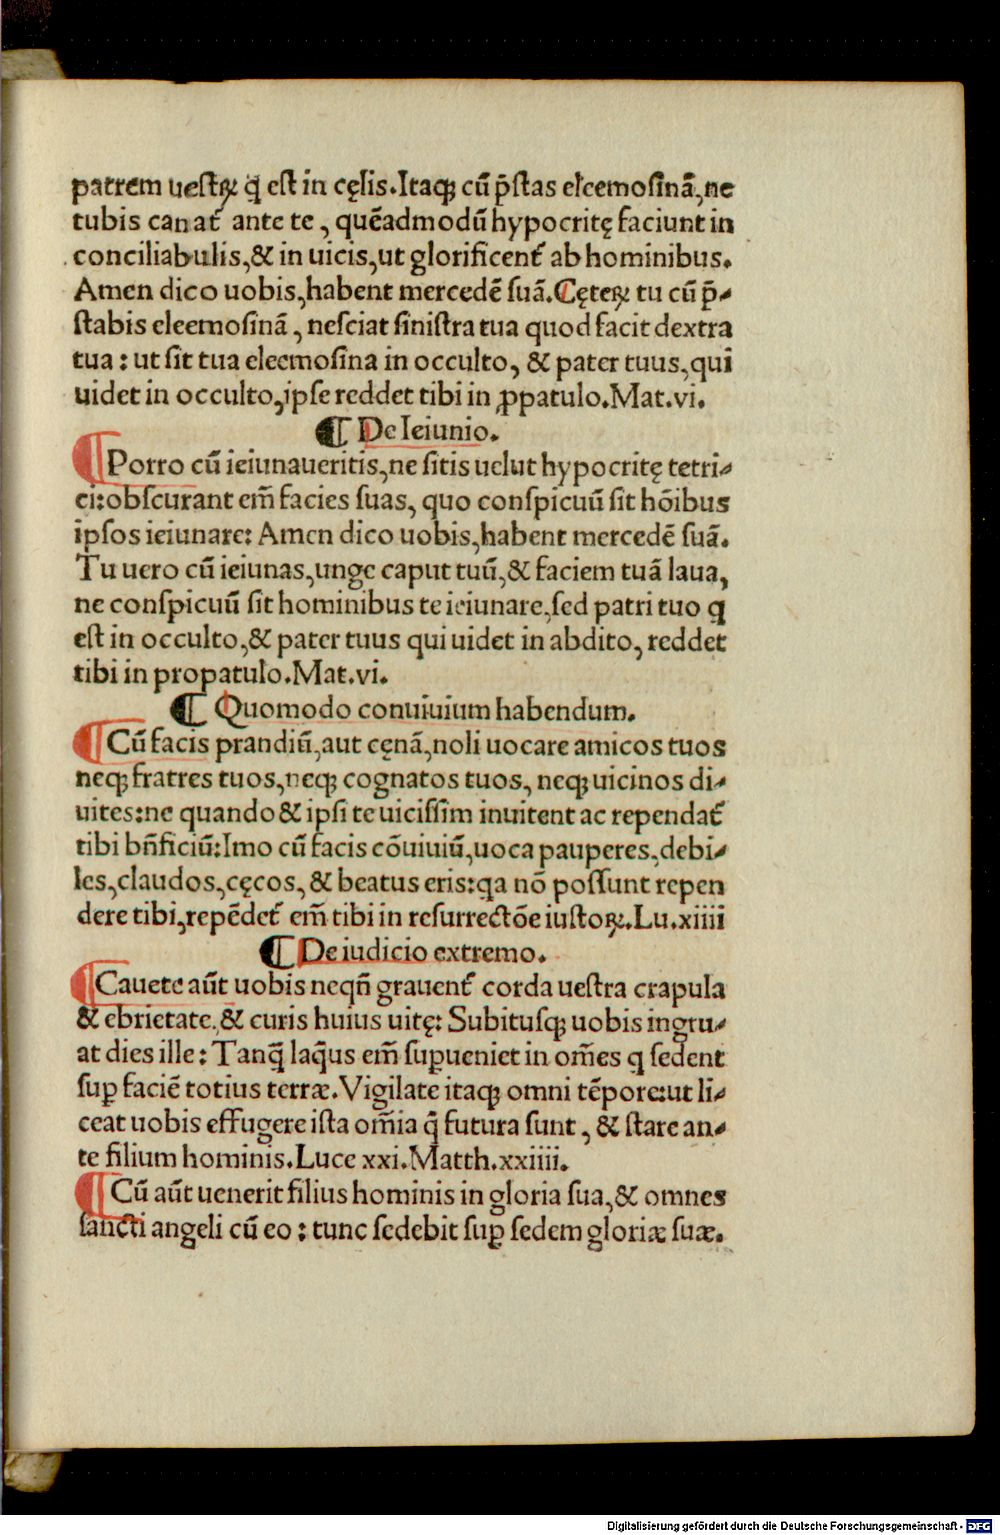 patrem ueſtꝝ q̄ eſt in cęlis.Itaqꝫ cū p̄ſtas eleemoſinā,ne
tubis canat᷑ ante te, quēadmodū hypocritę faciunt in
conciliabulis,& in uicis,ut glorificent᷑ ab hominibus.
Amen dico uobis,habent mercedē ſuā.Cęteꝝ tu cū p̄-
ſtabis eleemoſinā, neſciat ſiniſtra tua quod facit dextra
tua: ut ſit tua eleemoſina in occulto, & pater tuus,qui
uidet in occulto,ipſe reddet tibi in ꝓpatulo.Mat.vi.
¶ De Ieiunio.
¶ Porro cū ieiunaueritis,ne ſitis uelut hypocritę tetri-
ci:obſcurant em̄ facies ſuas, quo conſpicuū ſit hōibus
ipſos ieiunare: Amen dico uobis,habent mercedē ſuā.
Tu uero cū ieiunas,unge caput tuū,& faciem tuā laua,
ne conſpicuū ſit hominibus te ieiunare,ſed patri tuo q
eſt in occulto,& pater tuus qui uidet in abdito, reddet
tibi in propatulo.Mat.vi.
¶ Quomodo conuiuium habendum.
¶ Cū facis prandiū,aut cęnā,noli uocare amicos tuos
neqꝫ fratres tuos,neqꝫ cognatos tuos, neqꝫ uicinos di-
uites:ne quando & ipſi te uiciſſim inuitent ac rependat᷑
tibi bn̄ficiū:Imo cū facis cōuiuiū,uoca pauperes,debi-
les,claudos,cęcos, & beatus eris:qa nō poſſunt repen
dere tibi,repēdet᷑ em̄ tibi in reſurrectōe iuſtoꝝ.Lu.xiiii
¶ De iudicio extremo.
¶ Cauete aūt uobis neqn̄ grauent᷑ corda ueſtra crapula
& ebrietate,& curis huius uitę: Subituſqꝫ uobis ingru-
at dies ille: Tanq̄ laq̄us em̄ ſuꝑueniet in om̄es q ſedent
ſuꝑ faciē totius terræ.Vigilate itaqꝫ omni tēpore:ut li-
ceat uobis effugere iſta om̄ia q̄ futura ſunt, & ſtare an-
te filium hominis.Luce xxi.Matth.xxiiii.
¶ Cū aūt uenerit filius hominis in gloria ſua,& omnes
ſancti angeli cū eo: tunc ſedebit ſuꝑ ſedem gloriæ ſuæ.
Digitalisierung gefördert durch die Deutsche Forschungsgemeinschaft - DFG